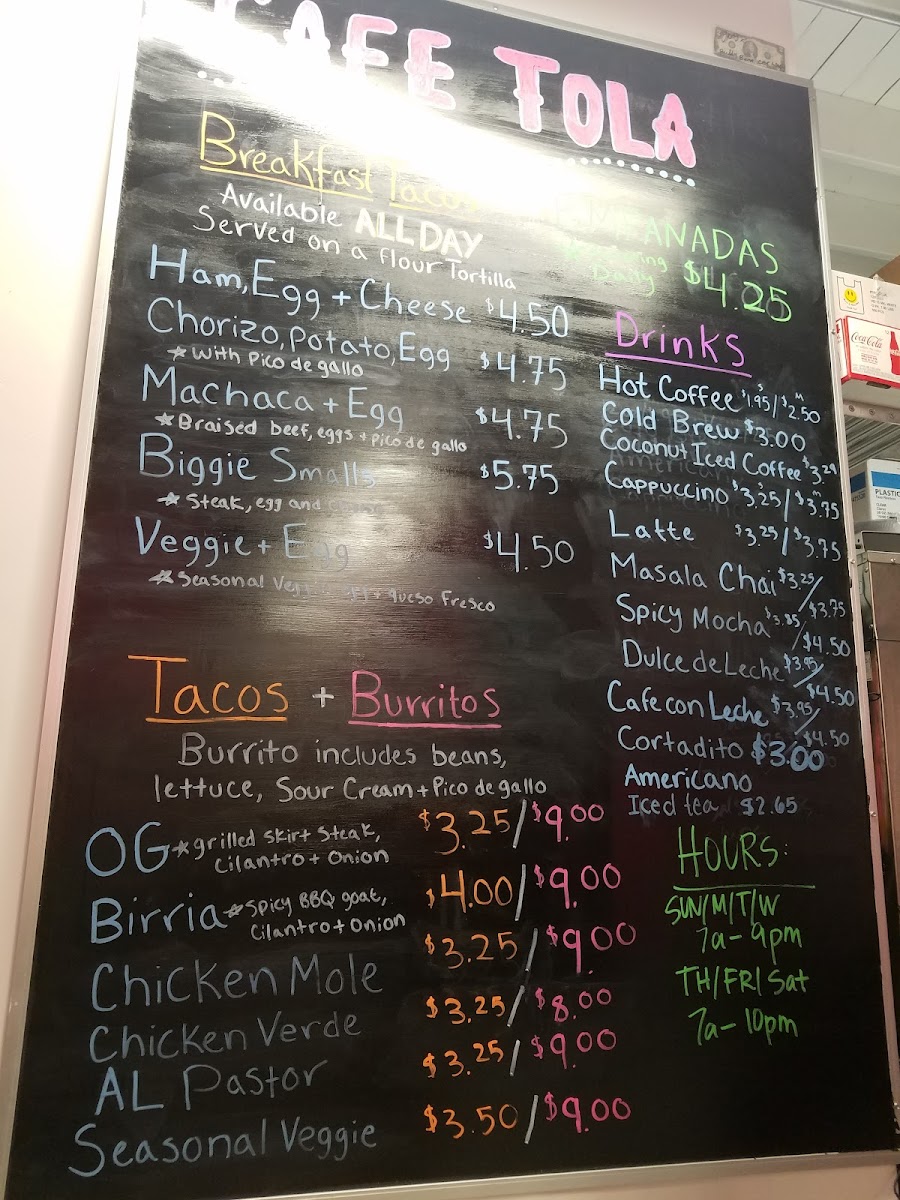 CAFE TOLA
Breakfast Tacos
Available ALL DAY
Served on a flour Tortilla
Ham, Egg + Cheese $4.50
Chorizo, Potato, Egg $4.75
★ with Pico de gallo
Machaca + Egg $4.75
★ Braised beef, eggs + pico de gallo
Biggie Smalls $5.75
★ Steak, egg and
Veggie + Egg $4.50
★ Seasonal Vegg egg + queso fresco
Tacos + Burritos
Burrito includes beans,
lettuce, Sour Cream + Pico de gallo
OG ★ grilled skirt steak, $3.25/$9.00
Cilantro + Onion
Birria ★ Spicy BBQ goat, $4.00/$9.00
Cilantro + Onion
Chicken Mole $3.25/$9.00
Chicken Verde $3.25/$8.00
AL Pastor $3.25/$9.00
Seasonal Veggie $3.50/$9.00
EMPANADAS
Daily $4.25
Drinks
Hot Coffee S $1.95/ M $2.50
Cold Brew $3.00
Coconut Iced Coffee $3.29
Cappuccino S $3.25/ M $3.75
Latte $3.25/$3.75
Masala Chai $3.25/
$3.75
Spicy Mocha $3.85
/$4.50
Dulce de Leche $3.95/
$4.50
Cafe con Leche $3.95/
$4.50
Cortadito $3.00
Americano
Iced tea $2.65
HOURS:
SUN/M/T/W
7a-9pm
TH/FRI/Sat
7a-10pm
Coca-Cola
PLASTIC